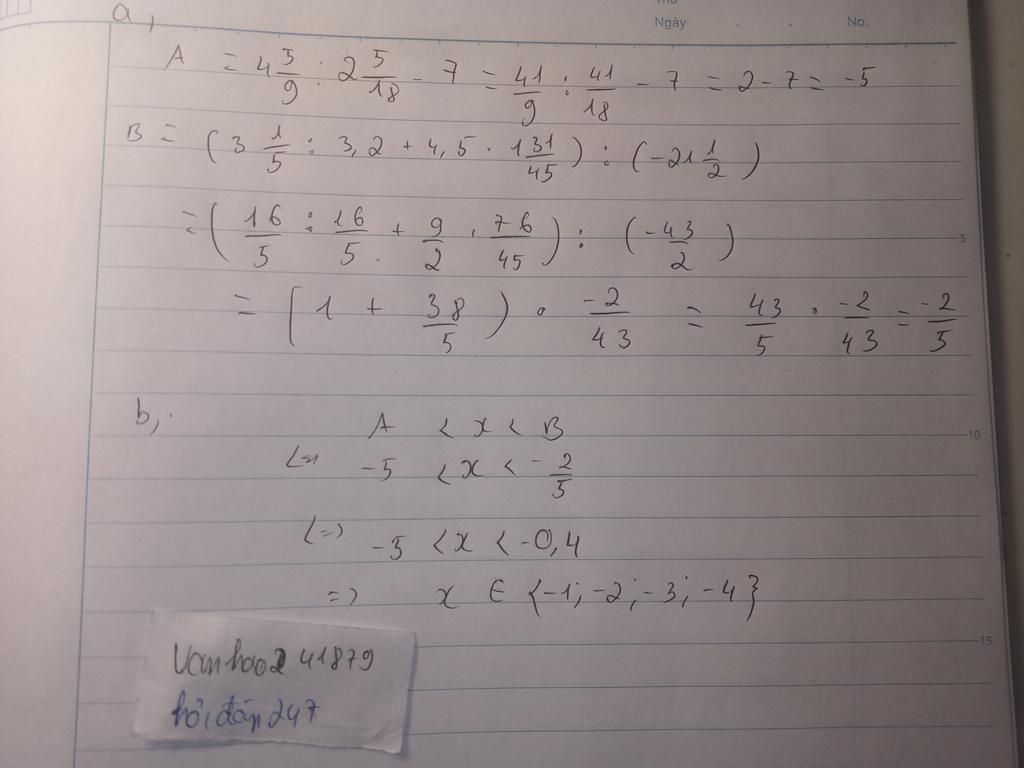 Thứ
Ngày . . No.
a,
A = 4 5/9 : 2 5/18 - 7 = 41/9 : 41/18 - 7 = 2 - 7 = -5
B = (3 1/5 : 3,2 + 4,5 . 1 31/45) : (-21 1/2)
= (16/5 : 16/5 + 9/2 . 76/45) : (-43/2)
5
= (1 + 38/5) . -2/43 = 43/5 . -2/43 = -2/5
b,
A < x < B
10
<=> -5 < x < -2/5
<=> -5 < x < -0,4
=> x ∈ {-1; -2; -3; -4}
15
vanhoo2 41879
hỏi đáp 247